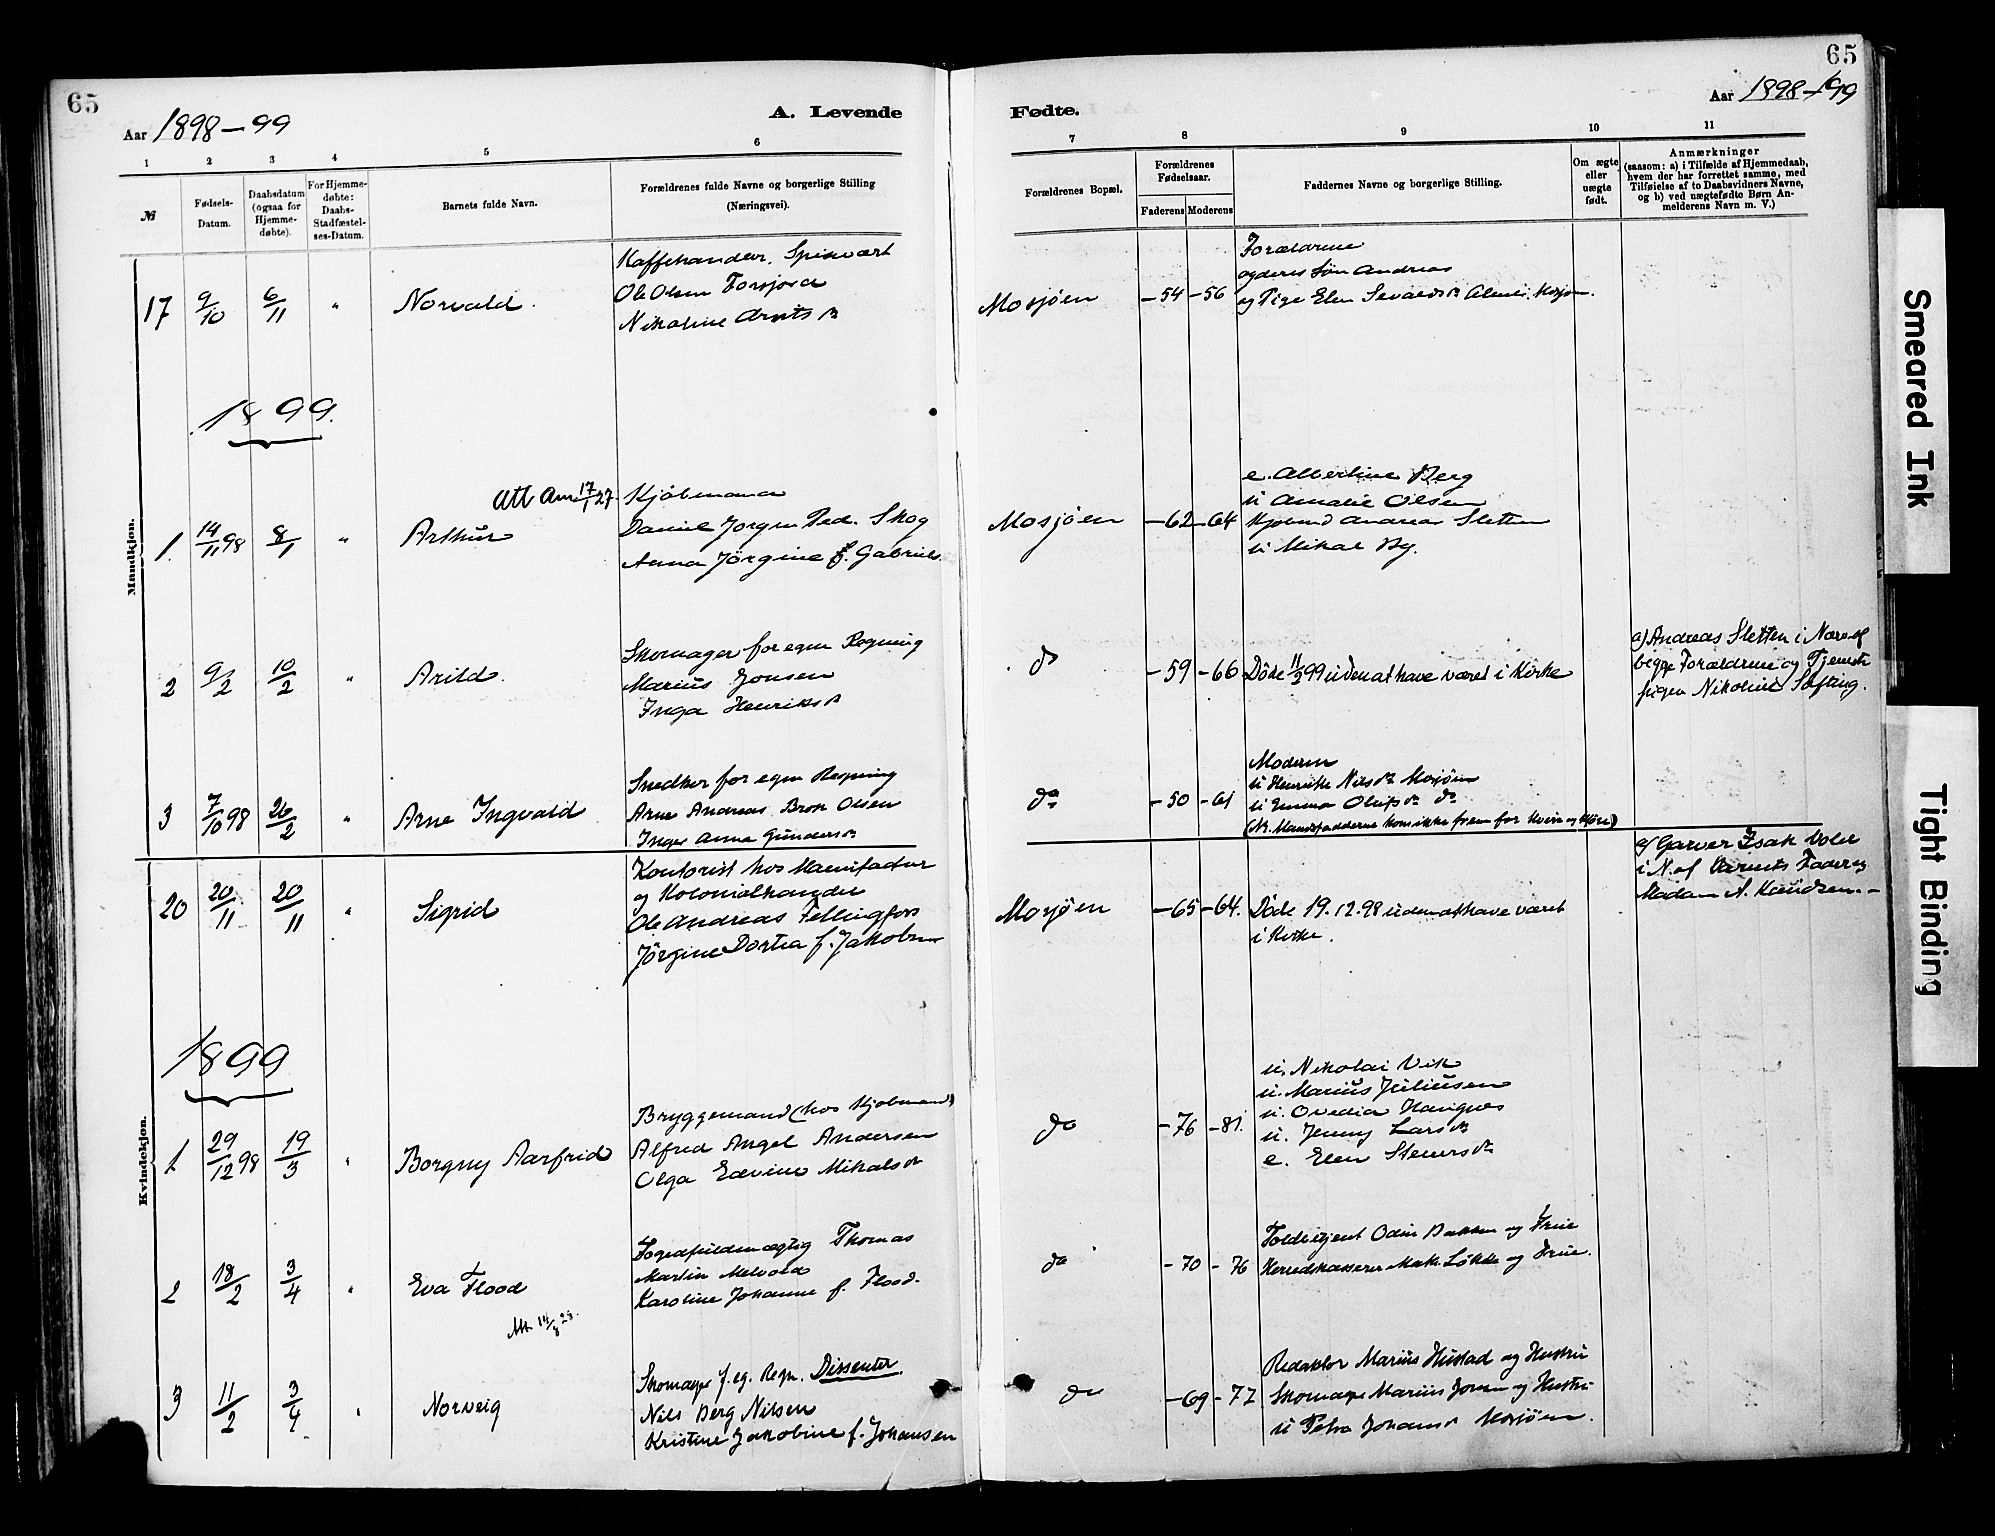 65
Aar 1898-99
A. Levende
1 2 3 4 5 6
№
Fødsels-Datum.
Daabsdatum (ogsaa for Hjemme-døbte).
For Hjemme-døbte: Daabs-Stadfæstel-ses-Datum.
Barnets fulde Navn.
Forældrenes fulde Navne og borgerlige Stilling (Næringsvei).
Mandkjøn.
17 9/10 6/11 " Norvald.
Kaffehandler, Spisevært
Ole Olsen Forsjord
Nikoline Arnts D.
1899.
Att. 17/1 27.
1. 14/11 98 8/1 " Arthur
Kjøbmand
Daniel Jørgen Ped. Skog
Anna Jørgine f. Gabriels.
2 9/2 10/2 " Arild.
Skomager for egen Regning
Marius Jonsen
Inga Henriks D
3 7/10 98 26/2 " Arne Ingvald
Snedker for egen Regning
Arne Andreas Brok Olsen
Inger Anna Gunders D.
20 20/11 20/11 " Sigrid
Kontorist hos Manufaktur
og Kolonialhandler
Ole Andreas Fellingfors
Jørgine Dortea f. Jakobsen
1899
Kvindekjøn.
1 29/12 98 19/3 " Borgny Aarfrid
Bryggemand (hos Kjøbmand)
Alfred Angel Andersen
Olga Edvine Mikals D.
2 18/2 3/4 " Eva Flood
Fogedfuldmægtig Thomas
Martin Melvold
Karoline Johanne f. Flood.
Att. 14/8 28.
3 11/2 3/4 " Norveig
Skomager f. eg. Regn. Dissenter.
Nils Berg Nilsen
Kristine Jakobine f. Johansen
65
Aar 1898-99
Fødte.
7 8 9 10 11
Forældrenes Bopæl.
Forældrenes Fødselsaar.
Faderens Moderens
Faddernes Navne og borgerlige Stilling.
Om ægte eller uægte født.
Anmærkninger
(saasom: a) i Tilfælde af Hjemmedaab, hvem der har forrettet samme, med Tilføielse af to Daabsvidners Navne, og b) ved uægtefødte Børn An-melderens Navn m. V.)
Mosjøen -54 -56
Forældrene
og deres Søn Andreas
og Pige Elen Sevalds D.
Mosjøen -62 -64
e. Albertine Berg
u Amalie Olsen
Kjøbmd Andreas Sletten
u Mikal By.
do -59 -66 Døde 11/2 99 uden at have været i Kirke
a) Andreas Sletten i Nærv. af
begge Forældrene og Tjeneste
pigen Nikoline Søfting.
do -50 -61
Moderen
u Henrikke Nils D. Mosjøen
u Emma Olufs D. do
(Nb. Mandsfadderne kom ikke frem for)
Mosjøen -65 -64. Døde 19.12.98 uden at have været
i Kirke.
a) Garver Isak Volen
i N. af Barnets Fader og
Madam A. Knudsen.-
do -76 -81.
u. Nikolai Vik
u. Marius Juliussen
u. Ovedia
u. Jenny Lars D.
e. Elen Steners D.
do -70 -76
Toldbetjent Odin Bakken og Frue
Herredskasserer Mak. Løkke og Frue.
do -69 -77
Redaktør Marius Hustad og Hustru
Skomager Marius Jonsen og Hustru
u Petra Johans D Mosjøen.
Smeared Ink
Tight Binding